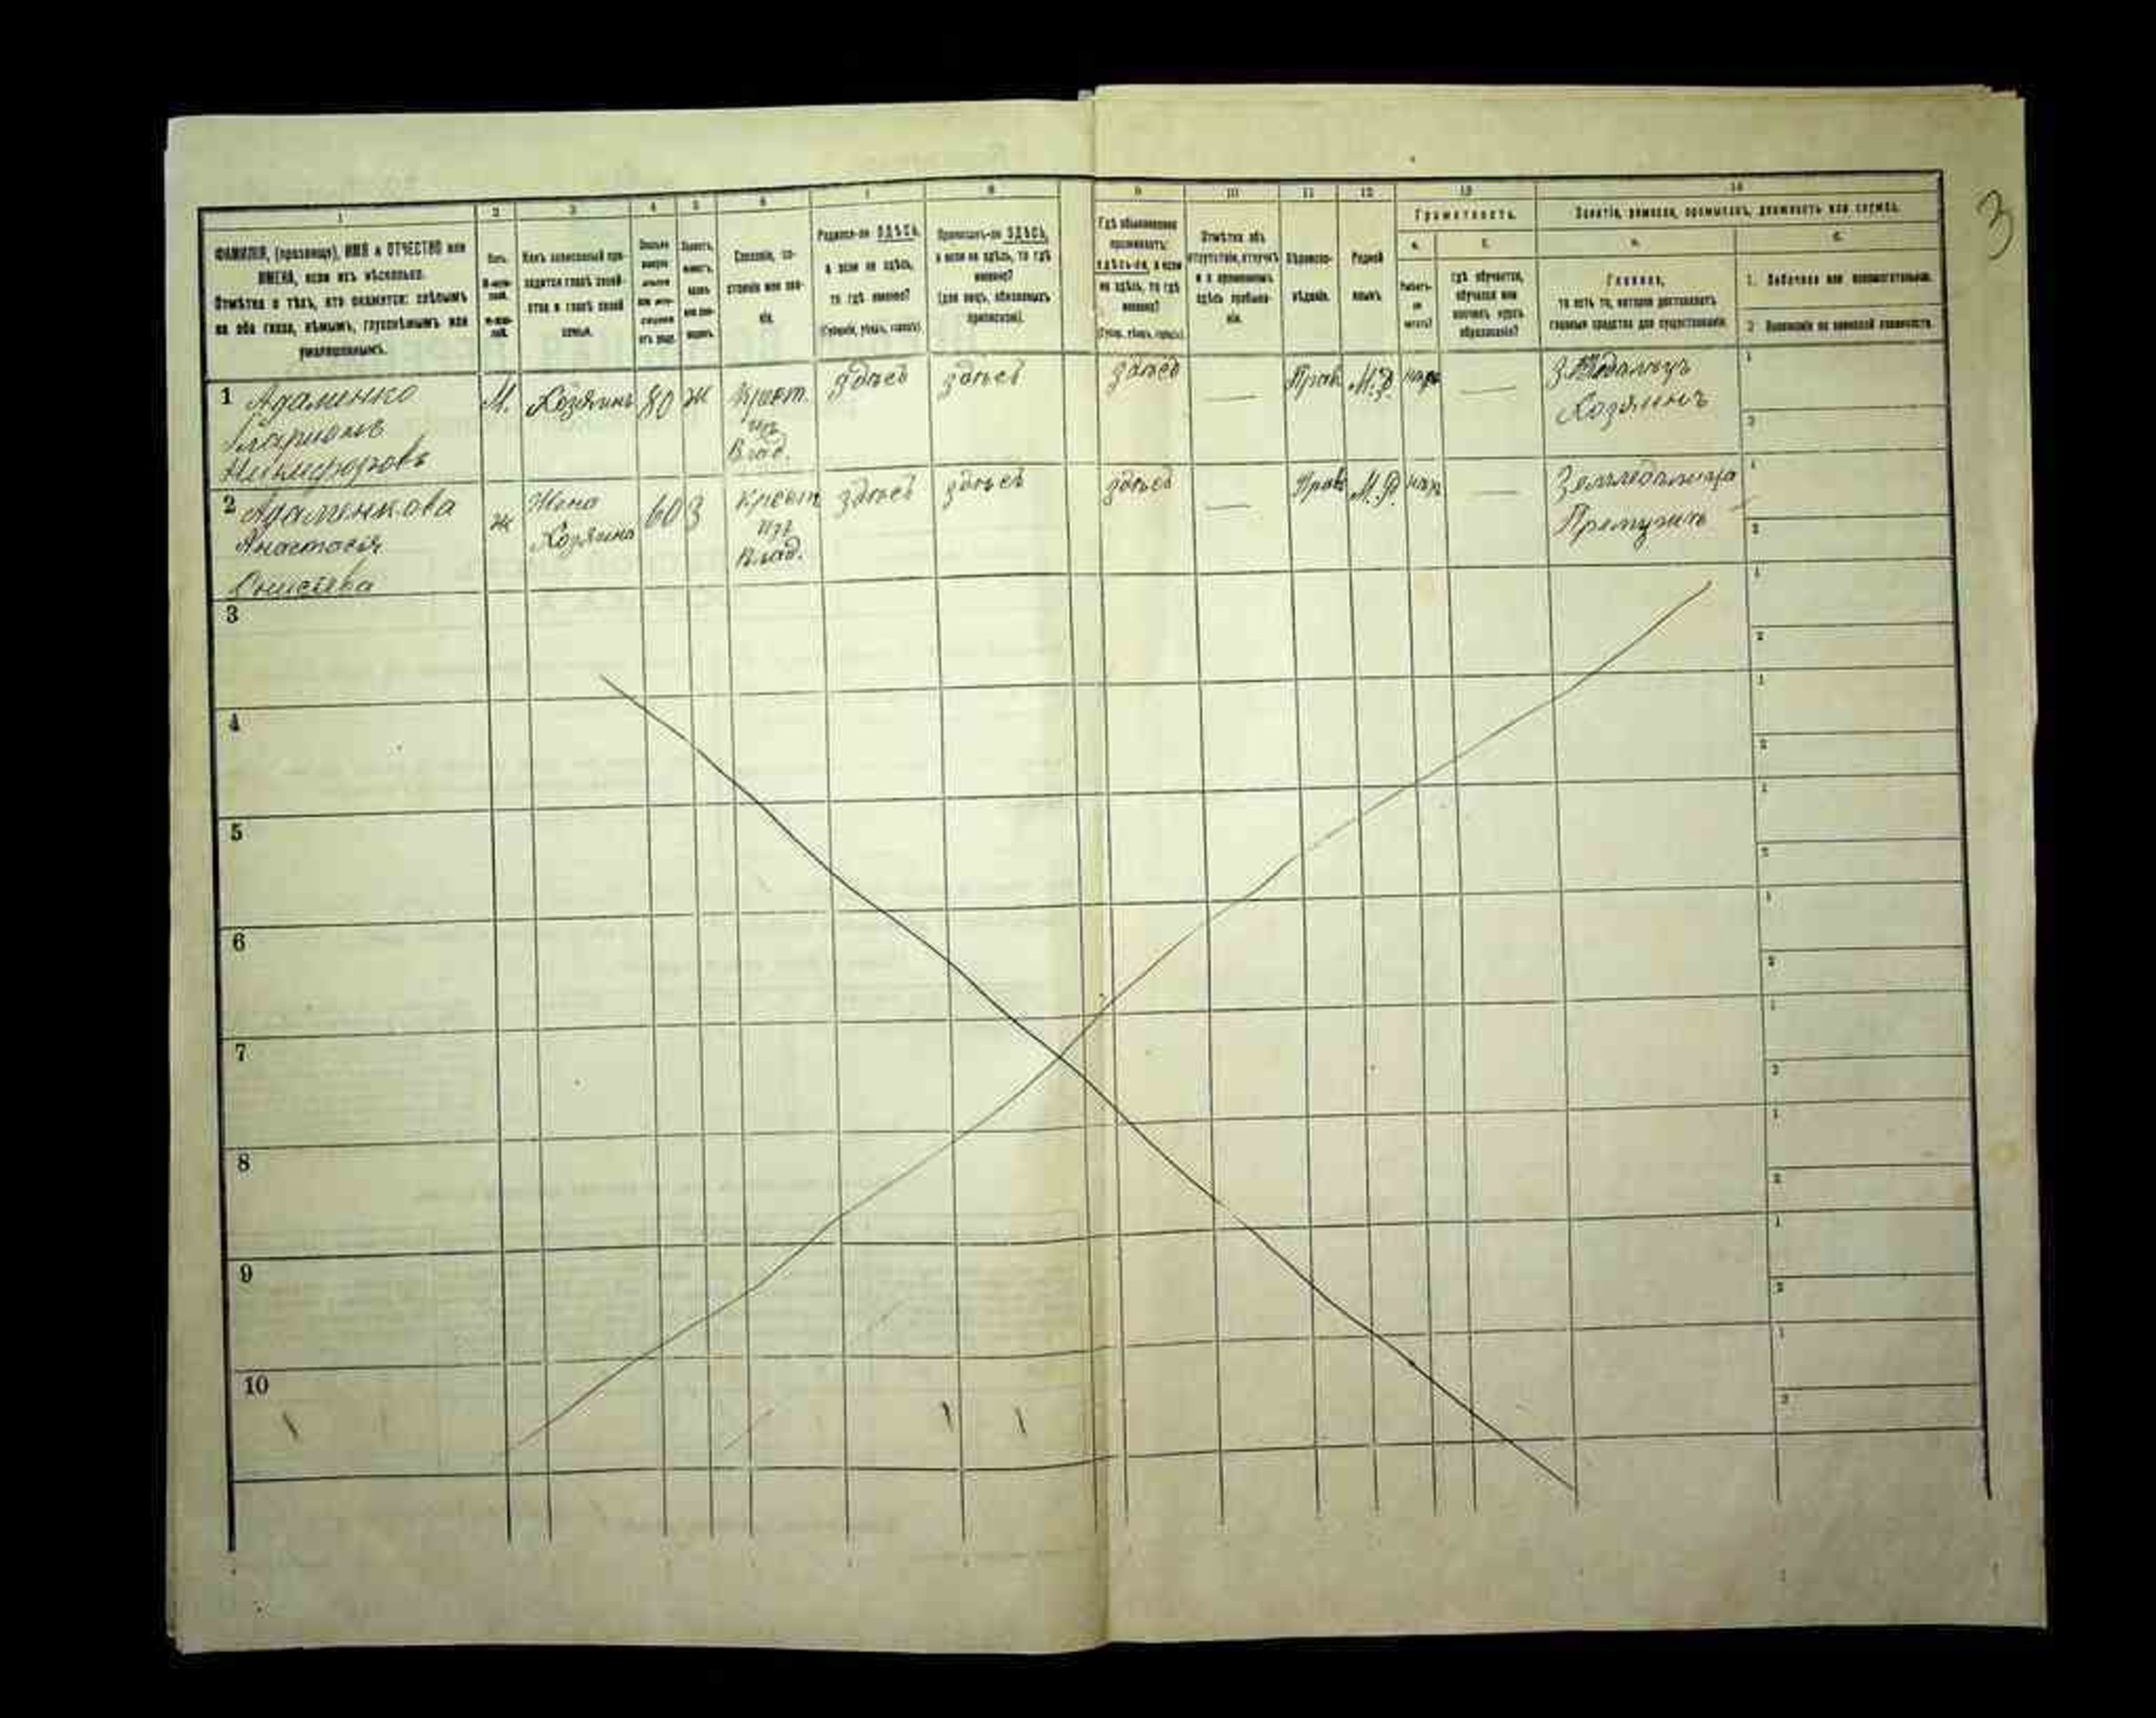 3
1 2 3 4 5 6 7 8 9 10 11 12 13 14
ФАМИЛІЯ, (прозвище), ИМЯ и ОТЧЕСТВО или
ИМЕНА, если ихъ нѣсколько.
Отмѣтка о тѣхъ, кто окажется: слѣпымъ
на оба глаза, нѣмымъ, глухонѣмымъ или
умалишеннымъ.
Полъ.
Какъ записанный при-
ходится главѣ хозяй-
ства и главѣ своей
семьи.
Сословіе, со-
стояніе или зва-
ніе.
Родился-ли ЗДѢСЬ,
а если не здѣсь,
то гдѣ именно?
(Губернія, уѣздъ, городъ).
Приписанъ-ли ЗДѢСЬ,
а если не здѣсь, то гдѣ
именно?
(для лицъ, обязанныхъ
припискою).
Гдѣ обыкновенно
проживаетъ:
здѣсь-ли, а если
не здѣсь, то гдѣ
именно?
(Губер., уѣздъ, городъ).
Отмѣтка объ
отсутствіи, отлучкѣ
и о временномъ
здѣсь пребыва-
ніи.
Вѣроиспо-
вѣданіе.
Родной
языкъ.
Грамотность.
а.
Умѣетъ-
ли
читать?
б.
гдѣ обучается,
обучался или
кончилъ курсъ
образованія?
Занятіе, ремесло, промыселъ, должность или служба.
а.
Главное,
то есть то, которое доставляетъ
главныя средства для существованія.
б.
1. Побочное или вспомогательное.
2 Положеніе по воинской повинности.
1 Адаменко М. Хозяинъ 80 ж Крест. здѣсь здѣсь здѣсь — Прав М.Р. — 1
Иларионъ изъ Хозяинъ
Никифоровъ Влад. 2
2 Адаменкова ж Жена 60 З крест здѣсь здѣсь здѣсь — Прав М.Р. — 1
Анастасія Хозяина изъ 2
Влад.
3 1
2
4 1
2
5 1
2
6 1
2
7 1
2
8 1
2
9 1
2
10 1
2